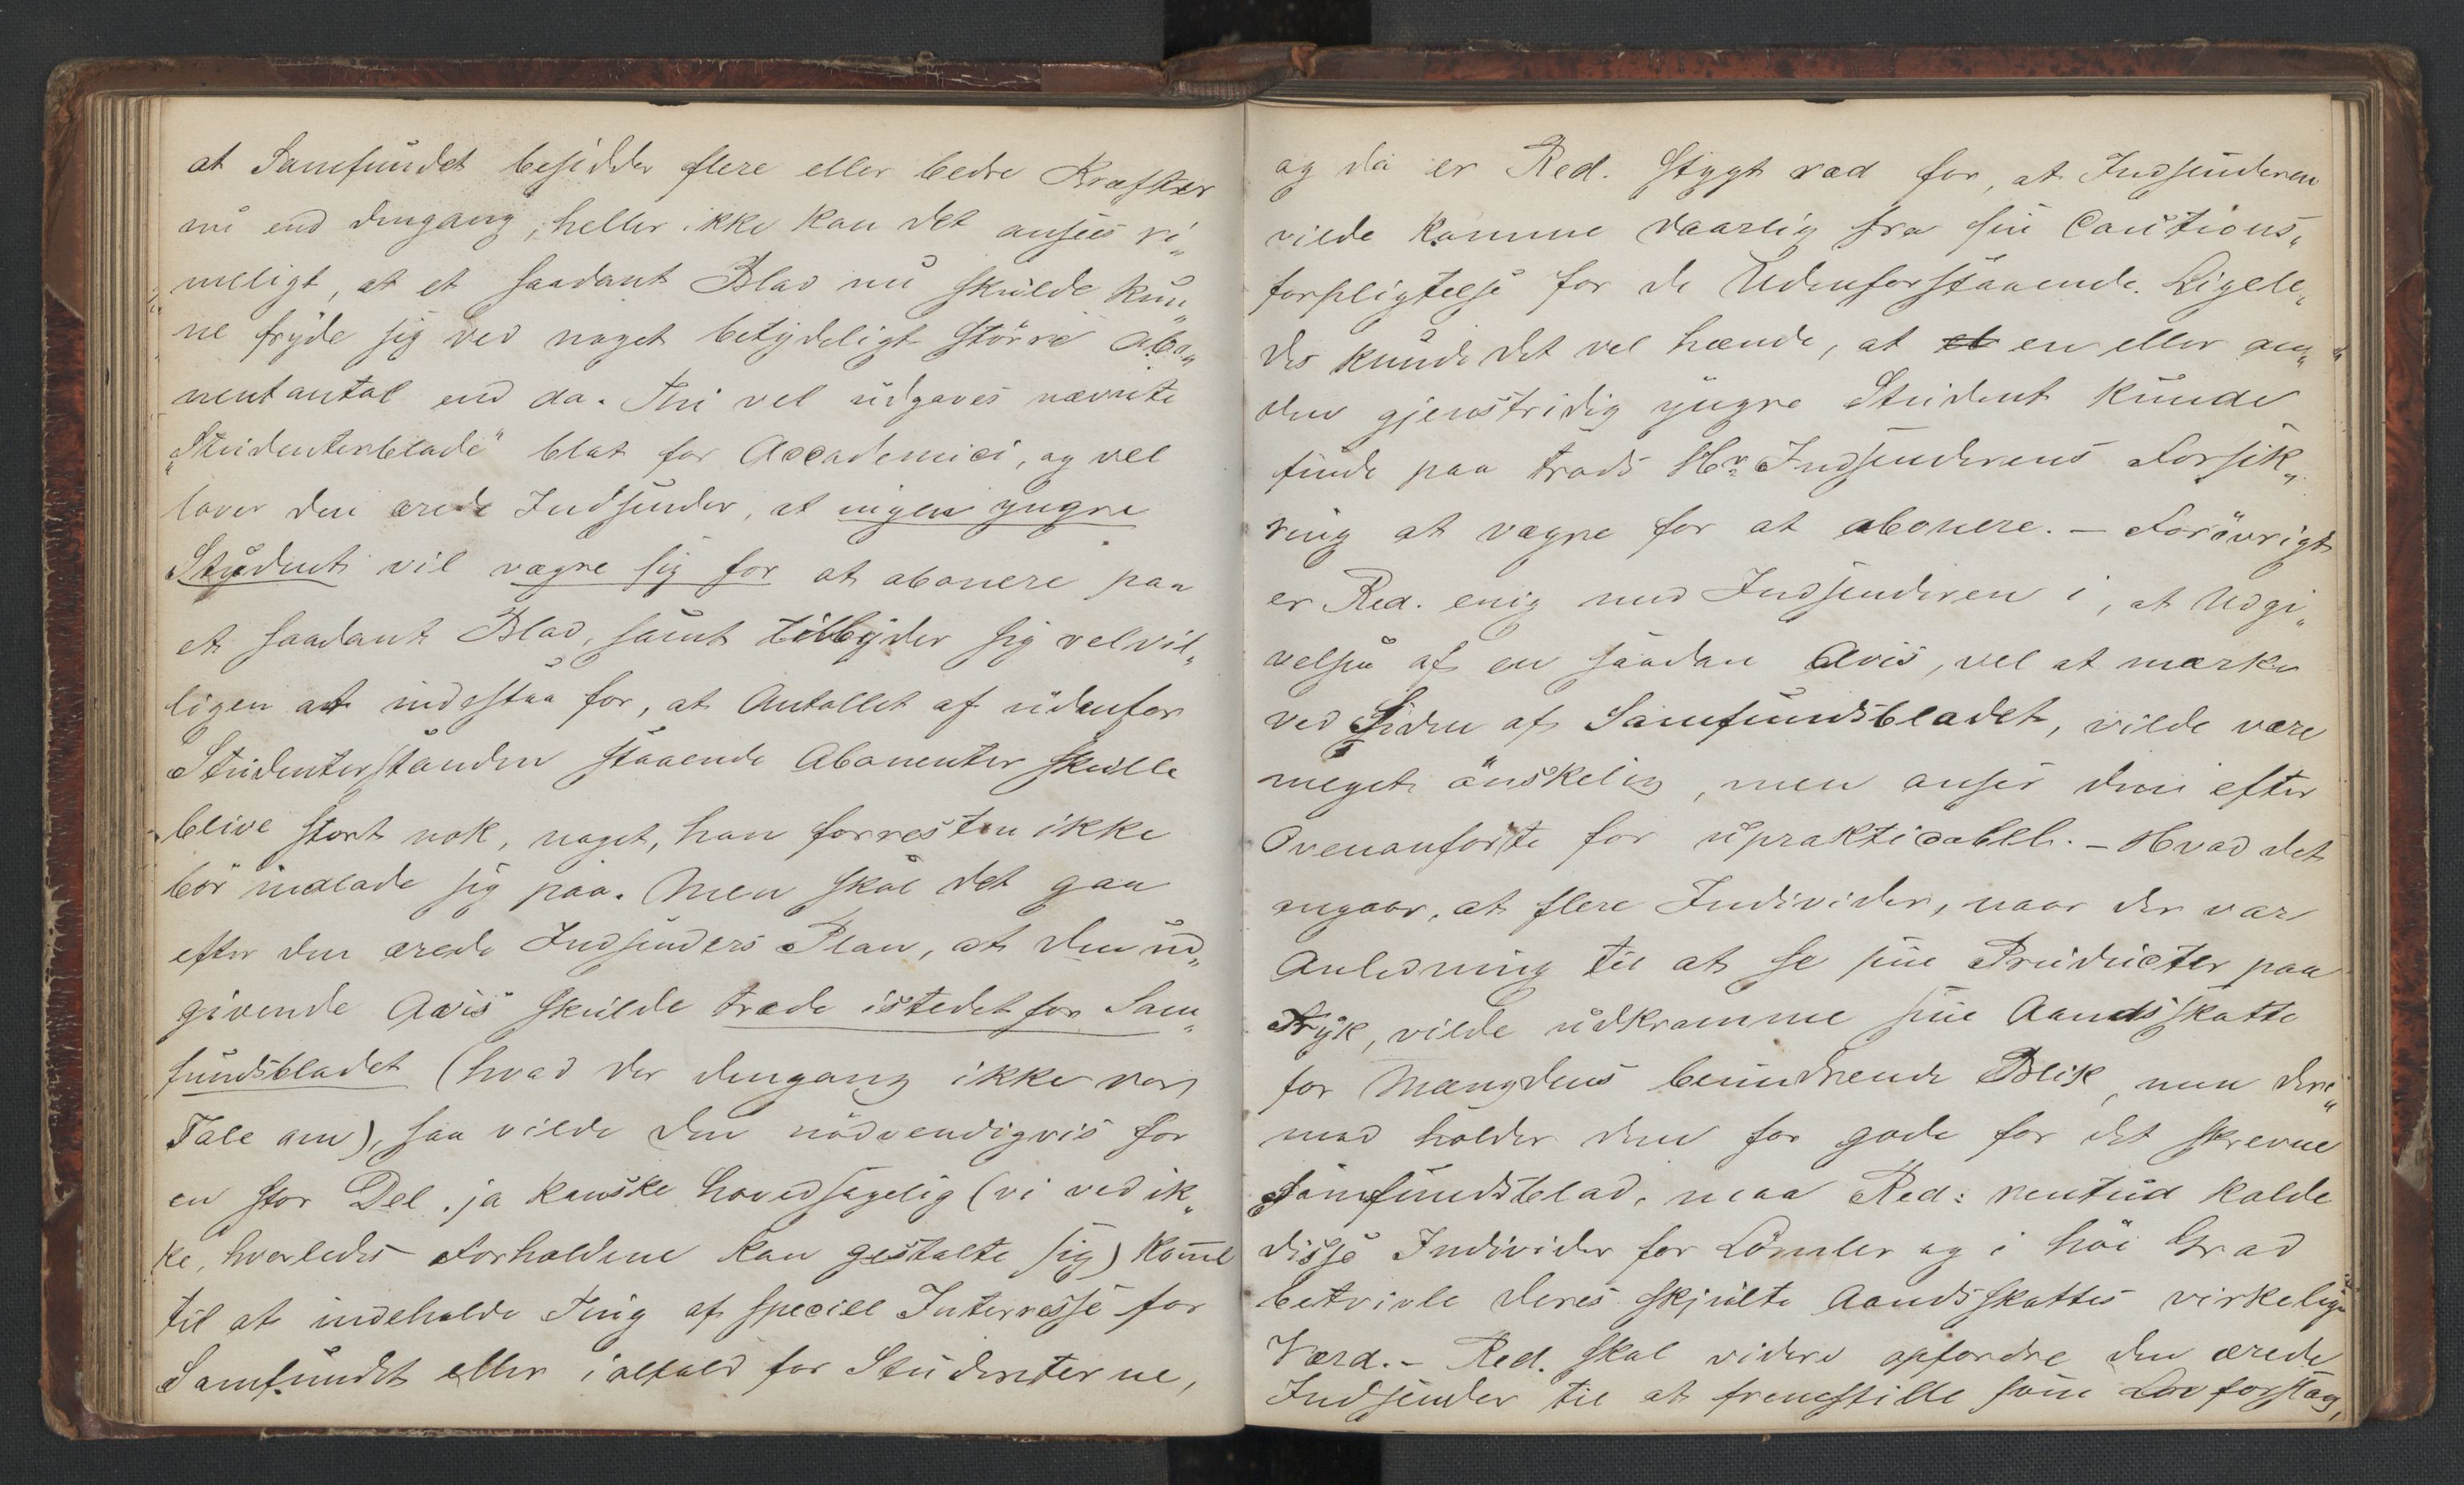 at Samfundet besidder flere eller bedre Kræfter
nu end dengang, heller ikke kan det ansees ri„
meligt, at et saadant Blad nu skulde kun„
ne fryde sig ved noget betydeligt större Abo„
nentantal end da. Thi vel udgaves nævnte
„Studenterblade" blot for Accademici, og vel
lover den ærede Indsender, at ingen yngre
Student vil vægre sig for at abonere paa
et saadant Blad, samt tilbyder sig velvil„
ligen at indestaa for, at Antallet af udenfor
Studenterstanden staaende Abonenter skulle
blive stort nok, noget, han forresten ikke
bör indlade sig paa. Men skal det gaa
efter den ærede Indsenders Plan, at den ud„
givende Avis skulde træde istedetfor Sam„
fundsbladet (hvad der dengang ikke var
Tale om), saa vilde den nödvendigvis for
en stor Del, ja kanske hovedsagelig (vi ved ik„
ke, hvorledes Forholdene kan gestalte sig) komme
til at indeholde Ting af speciell Interresse for
Samfundet eller ialfald for Studenterne,
og da er Red. stygt ræd for, at Indsenderen
vilde komme daarlig fra sin Cautions„
forpligtelse for de Udenforstaaende. Ligele„
des kunde det vel hænde, at et en eller an„
den gjenstridig yngre Student kunde
finde paa trods Hr. Indsenderens Forsik„
ring at vægre for at abonere. – Forövrigt
er Red. enig med Indsenderen i, at Udgi„
velsen af en saadan Avis, vel at mærke
ved Siden af Samfundsbladet, vilde være
meget önskelig, men anser den efter
Ovenanförte for upraktisabel. – Hvad det
angaar, at flere Individer, naar der var
Anledning til at se sine Producter paa
Tryk, vilde udkramme sine Aandsskatte
for Mængdens beundrende Blik, men der„
mod holder dem for gode for det skrevne
Samfundsblad, maa Red: rentud kalde
disse Individer for Lömler og i höi Grad
betvivle deres skjulte Aandsskattes virkelige
Værd. – Red. skal videre opfordre den ærede
Indsender til at fremstille sine Lovforslag,